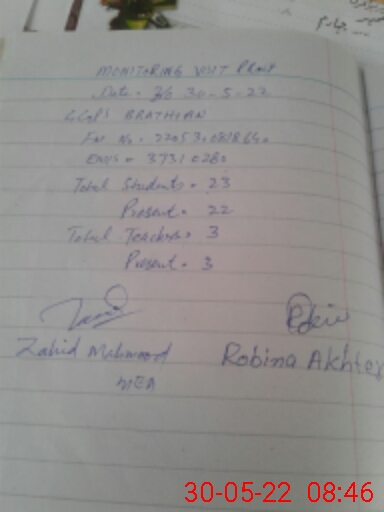 MONITORING VISIT PROOF
Date: 30-5-22
GGPS BRATHIAN
EMIS = 37310280
Total Students = 23
Present = 22
Total Teachers = 3
Present = 3
Zahid Mahmood
Robina Akhter
MEA
30-05-22 08:46